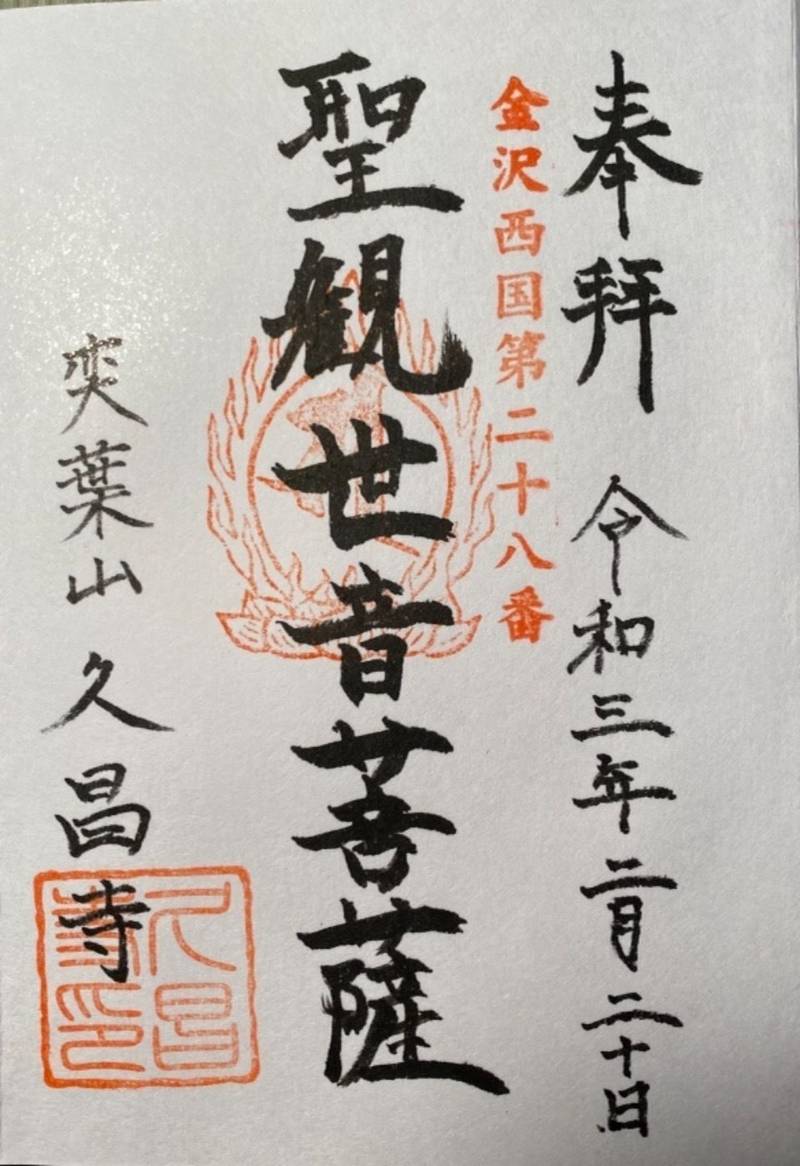 奉拝 令和三年二月二十日
金沢西国第二十八番
聖観世音菩薩
奕葉山 久昌寺
久昌寺印